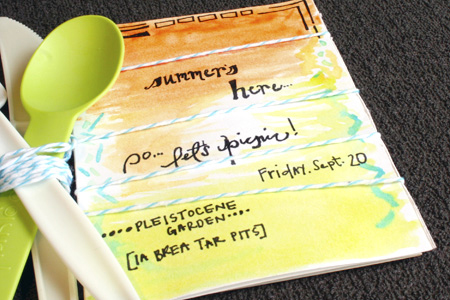 summer's
here...
so... let's picnic!
Friday. Sept. 20
....PLEISTOCENE
GARDEN....
[LA BREA TAR PITS]